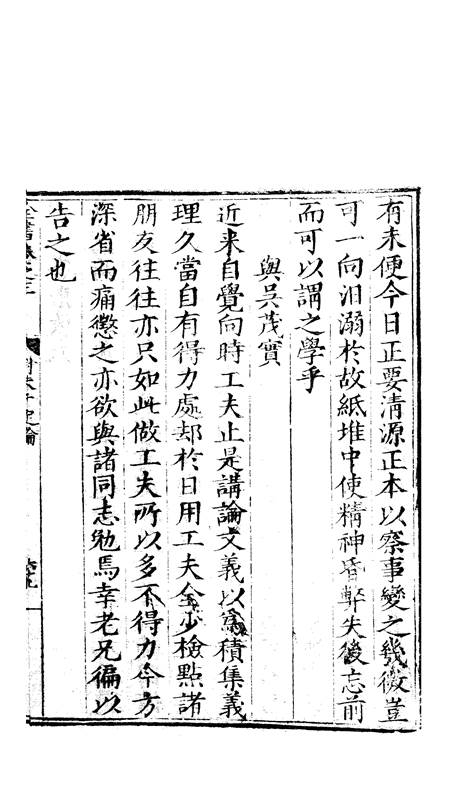 有未便今日正要清源正本以察事變之幾微豈
可一向汩溺於故紙堆中使精神昏弊失後忘前
而可以謂之學乎
與吳茂實
近來自覺向時工夫止是講論文義以爲積集義
理久當自有得力處却於日用工夫全少檢點諸
朋友往往亦只如此做工夫所以多不得力今方
深省而痛懲之亦欲與諸同志勉焉幸老兄徧以
告之也